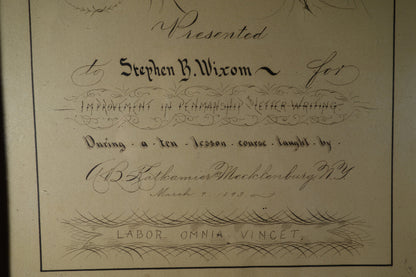 Presented
to Stephen B. Wixom for
IMPROVEMENT IN PENMANSHIP & LETTER WRITING
During · a · ten · lesson · course · taught · by ·
Mecklenburg N.Y.
March
LABOR OMNIA VINCET.